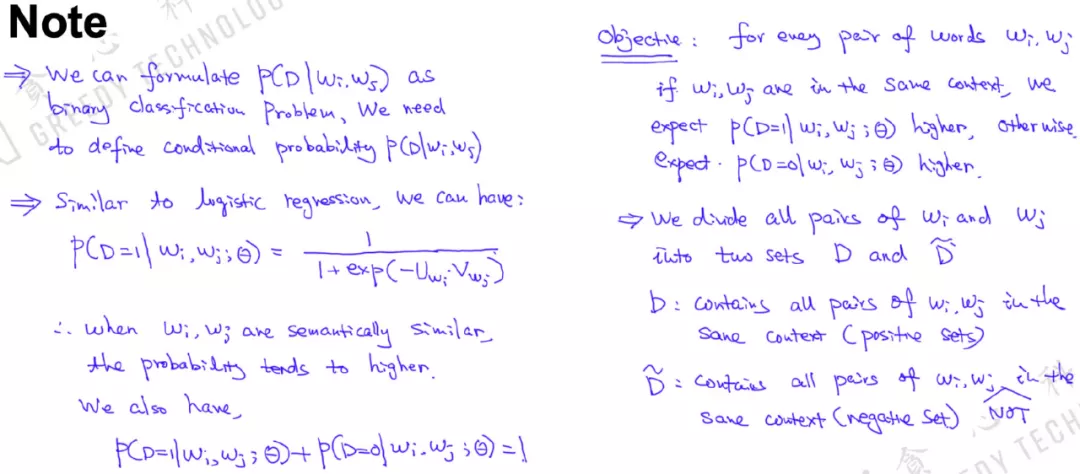 Note
⇒ We can formulate P(D|wi, wj) as
binary classification problem, We need
to define conditional probability P(D|wi, wj)
⇒ Similar to logistic regression, we can have:
P(D=1|wi, wj; θ) = 1 / (1 + exp(-Uwi · Vwj))
∴ when wi, wj are semantically similar,
the probability tends to higher.
We also have,
P(D=1|wi, wj; θ) + P(D=0|wi, wj; θ) = 1
Objective: for every pair of words wi, wj
if wi, wj are in the same context, we
expect P(D=1|wi, wj; θ) higher, otherwise
expect P(D=0|wi, wj; θ) higher.
⇒ We divide all pairs of wi and wj
into two sets D and D̃
D: contains all pairs of wi, wj in the
same context (positive sets)
D̃: contains all pairs of wi, wj NOT in the
same context (negative set)
GREEDY TECHNOLO
DY TECH